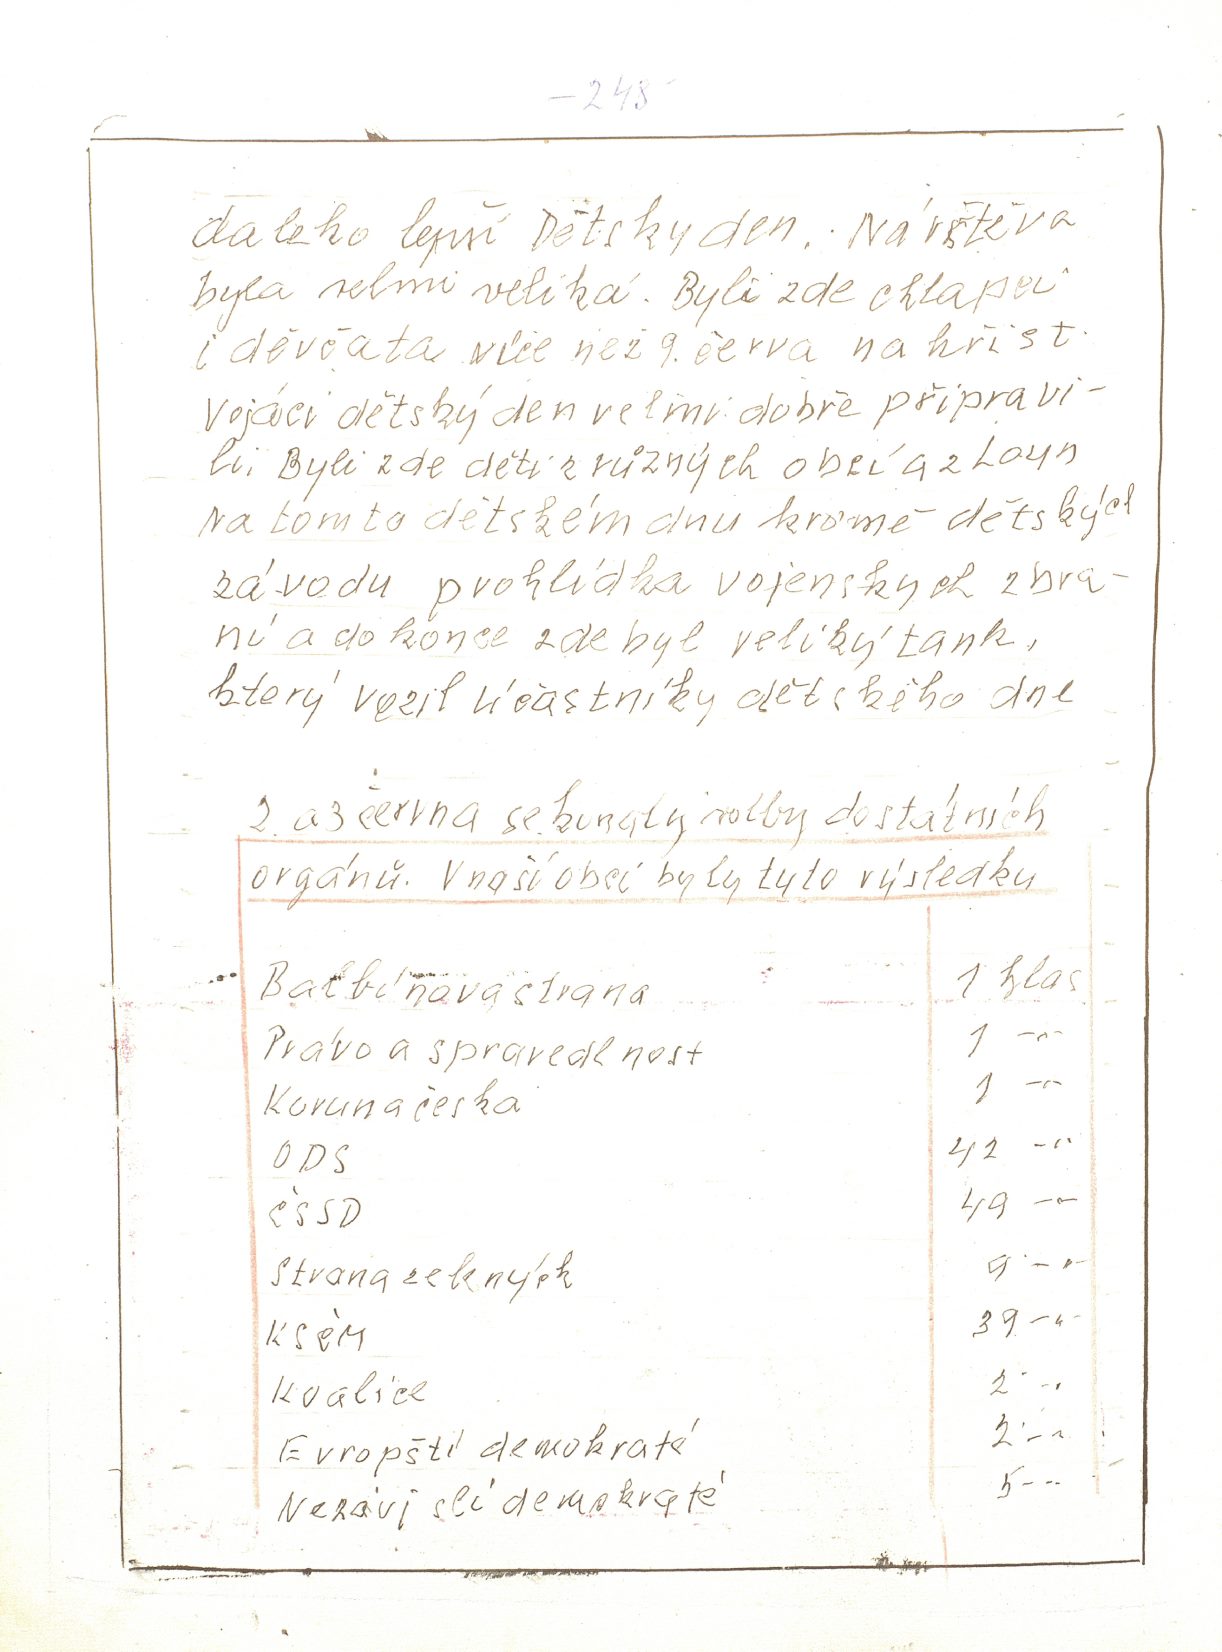 - 248 -
daleko lepší Dětsky den. Návštěva
byla velmi veliká. Byli zde chlapci
i děvčata více než 9. červa na hřišt.
Vojáci dětský den velmi dobře připravi-
li. Byli zde děti z různých obcí a z Loun
Na tomto dětském dnu kromě dětských
závodu prohlídka vojenských zbra-
ní a dokonce zde byl veliký tank,
který vozil účastníky dětského dne
2. a 3 června se konaly volby do státních
orgánů. V naší obci byly tyto výsledky
Balbínova strana 1 hlas
Právo a spravedlnost 1 -"-
Koruna česká 1 -"-
ODS 42 -"-
ČSSD 49 -"-
Strana zelených 9 -"-
KSČM 39 -"-
Koalice 2 -"-
Evropští demokraté 2 -"-
Nezávislí demokraté 5 -"-